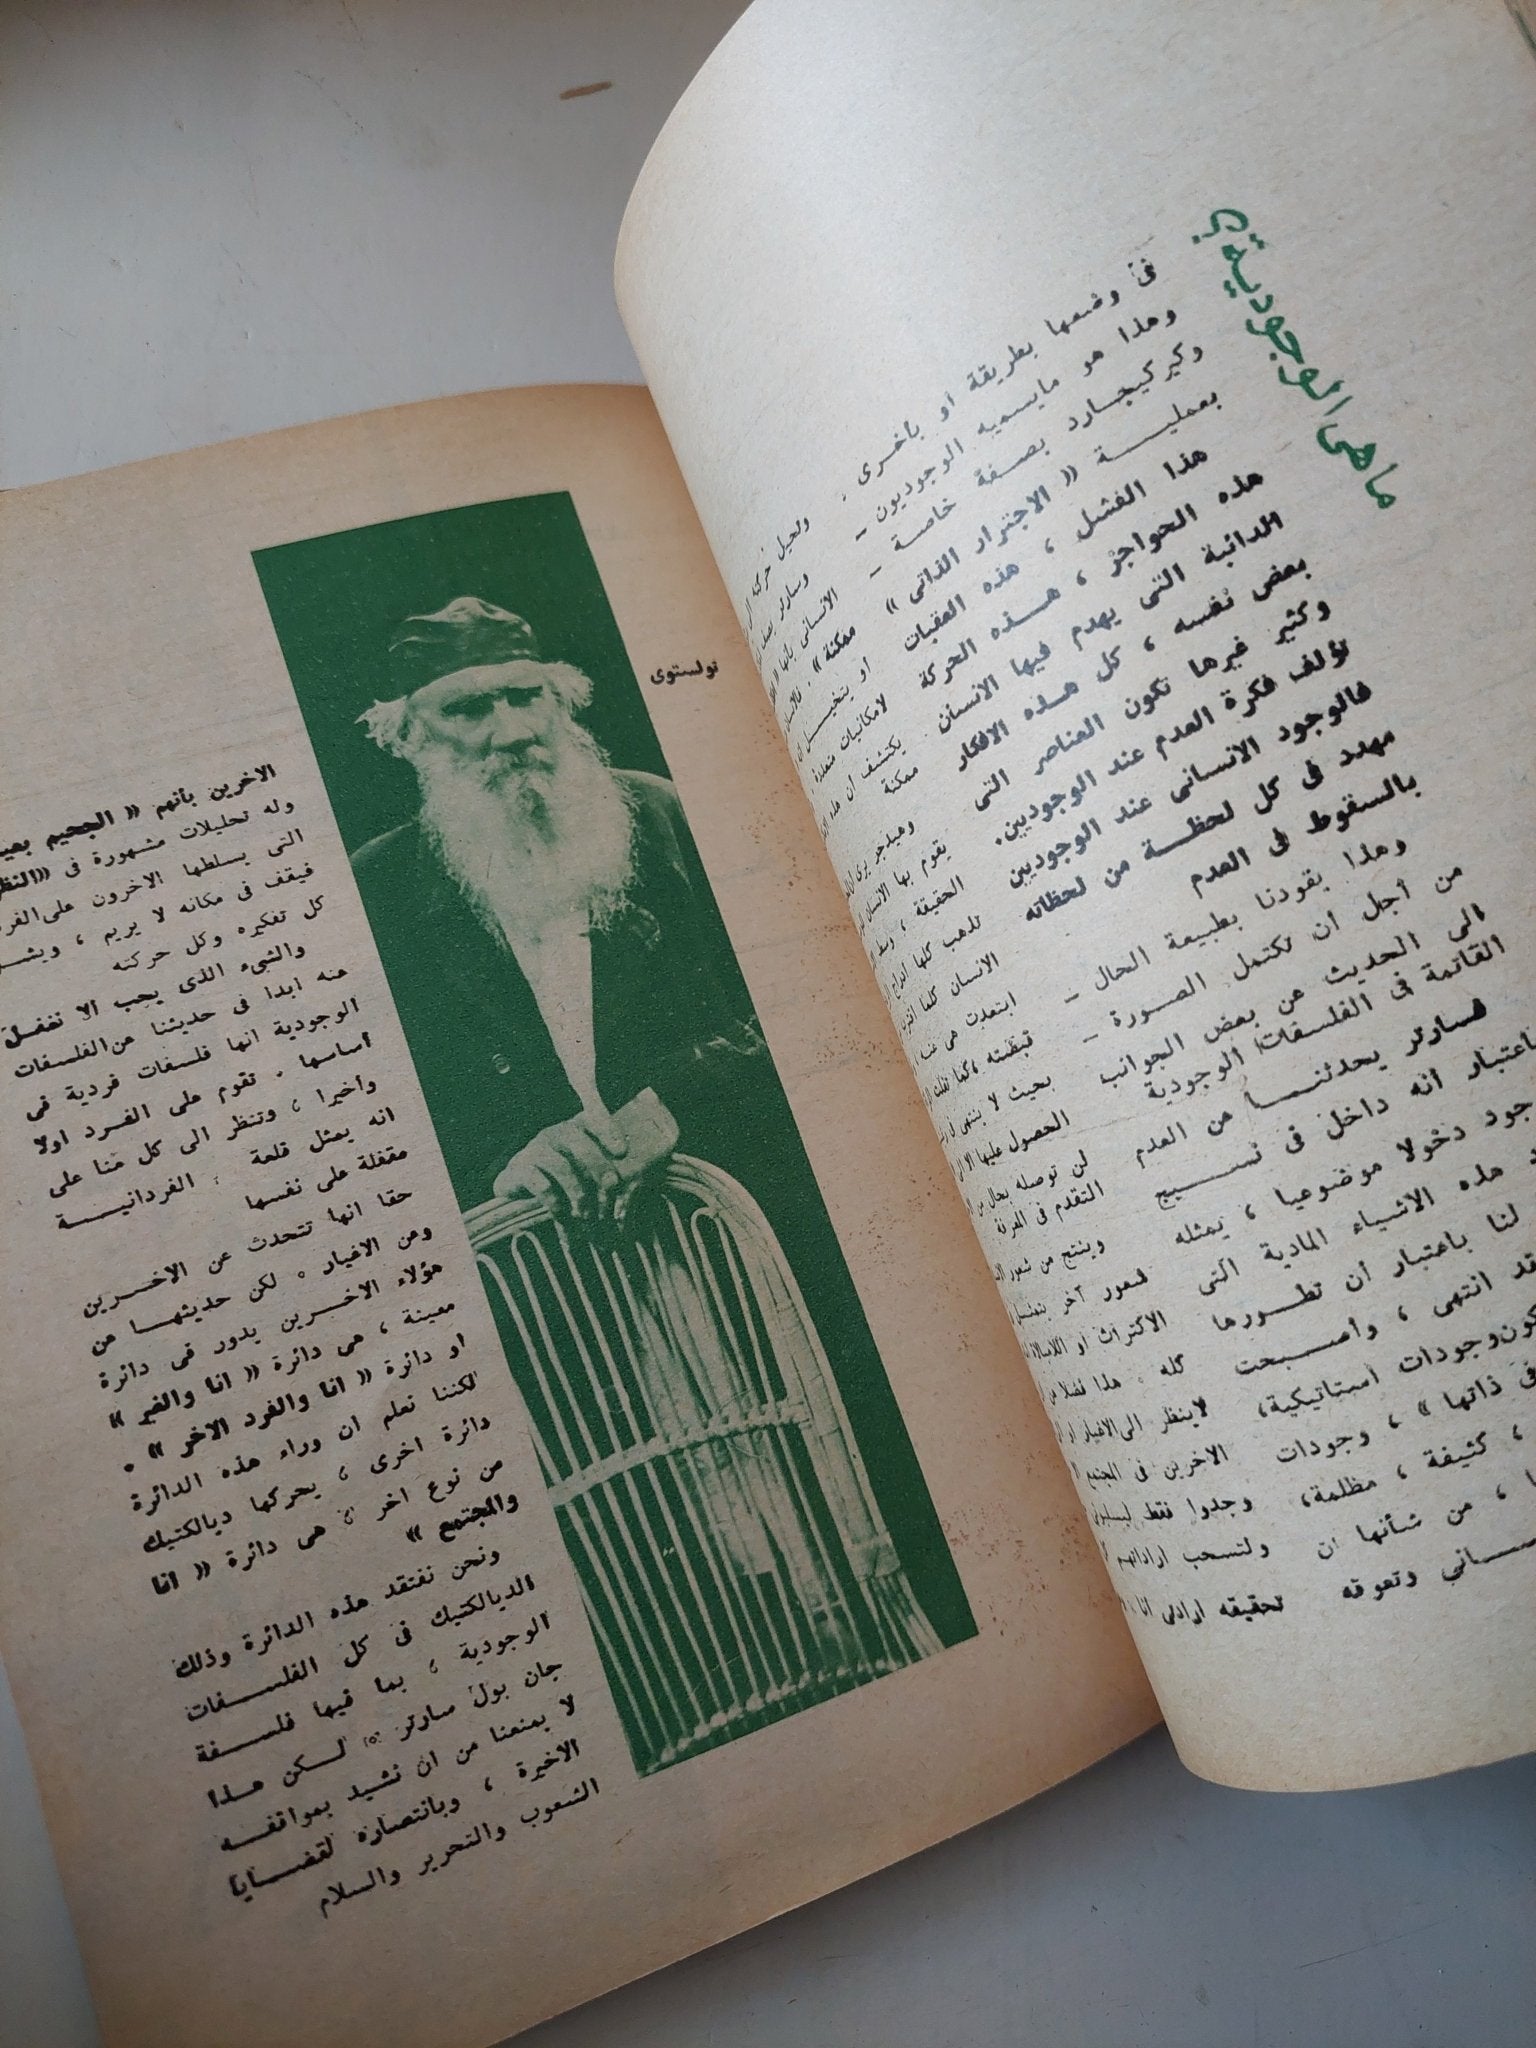 ما هى الوجودية؟
فى وضعها بطريقة او باخرى .
وهذا هو مايسميه الوجوديون –
وكيركيجارد بصفة خاصة –
بعمليــــة « الاجترار الذاتى »
هذا الفشل ، هذه العقبات
هذه الحواجز ، هــذه الحركة
الدائبة التى يهدم فيها الانسان
بعض نفسه ، كل هــذه الافكار
وكثير غيرها تكون العناصر التى
تؤلف فكرة العدم عند الوجوديين.
فالوجود الانسانى عند الوجوديين
مهدد فى كل لحظــة من لحظاته
بالسقوط فى العدم
وهذا يقودنا بطبيعة الحال –
من أجل ان تكتمل الصورة –
الى الحديث عن بعض الجوانب
القاتمة فى الفلسفات الوجودية
فسارتر يحدثنــا من العدم
باعتبار انه داخل فى نســيج
دخولا موضوعيا ، يمثله
هذه الاشياء المادية التى
لنا باعتبار أن تطــورها
انتهى ، وأصــبحت
وجودات استاتيكية،
فى ذاتها » ، وجودات
، كثيفة ، مظلمة،
، من شأنها ان
وتعوقه
ممكنة » . فالانسان
او يتخيــل
لامكانيات متعددة
يكتشف ان هذه
ممكنة
يقوم بها الانسان
الحقيقة ،
تذهب كلها
الانسان كلما
ابتعدت هى عنه
قبضته ،كما تفلت
بحيث لا ينتهى
الحصول عليها الا
لن توصله بحال من
التقدم فى المعرفة
وينتج من شعور
شعور آخر يتمثل
الاكتراث او اللامبالاة
كله . هذا فضلا عن
لاينظر الى الاغيار او
الاخرين فى المجتمع
وجدوا فقط ليسلبونى
ولتسحب اراداتهم
تحقيقه ارادتى انا
تولستوى
الاخرين بأنهم « الجحيم
وله تحليلات مشهورة فى «النظر
التى يسلطها الاخرون على الفرد
فيقف فى مكانه لا يريم ،
كل تفكيره وكل حركته
والشىء الذى يجب الا نغفــل
عنه ابدا فى حديثنا عن الفلسفات
الوجودية انها فلسفات فردية فى
أساسها . تقوم على الفــرد اولا
وأخيرا ، وتنظر الى كل منا على
انه يمثل قلعة الفردانيــــة
مقفلة على نفسها
حقا انها تتحدث عن الاخــرين
ومن الاغيار . لكن حديثهــا من
هؤلاء الاخــرين يدور فى دائرة
معينة ، هى دائرة « انا والغير »
او دائرة « انا والفرد الاخر » .
لكننا نعلم ان وراء هذه الدائرة
دائرة اخرى ، يحركها ديالكتيك
من نوع اخر ، هى دائرة « انا
والمجتمع »
ونحن نفتقد هذه الدائرة وذلك
الديالكتيك فى كل الفلســفات
الوجودية ، بما فيها فلســفة
جان بول سارتر . لــكن هــذا
لا يمنعنا من ان نشيد بمواقفــه
الاخيرة ، وبانتصاره لقضــايا
الشعوب والتحرير والسلام